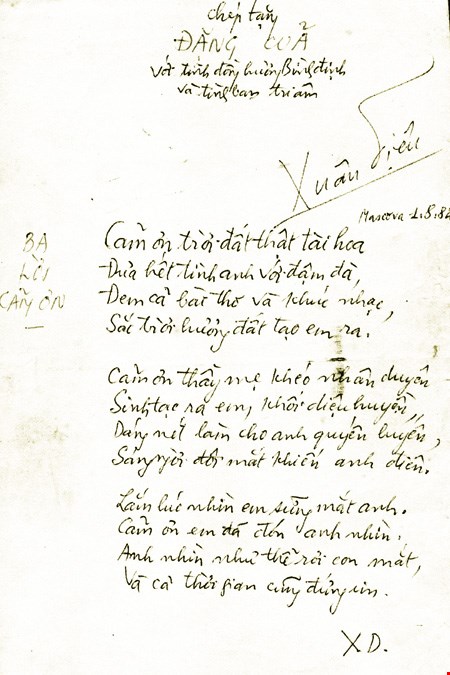 chép tặng
ĐẶNG
với tình đồng hương Bình định
và tình bạn tri âm
Xuân Diệu
Mascova 1.8.82
BA
LỜI
CẢM ƠN
Cảm ơn trời đất thật tài hoa
Dừa hết tinh anh với đậm đà,
Đem cả bài thơ và khúc nhạc,
Sắc trời hương đất tạo em ra.
Cảm ơn thầy mẹ khéo nhân duyên
Sinh tạc ra em, khối diệu huyền,
Dáng nét làm cho anh quyến luyến,
Sáng ngời đôi mắt khiến anh điên.
Lắm lúc nhìn em sững mắt anh.
Cảm ơn em đã đón anh nhìn.
Anh nhìn như thể rời con mắt,
Và cả thời gian cũng đứng im.
X D.